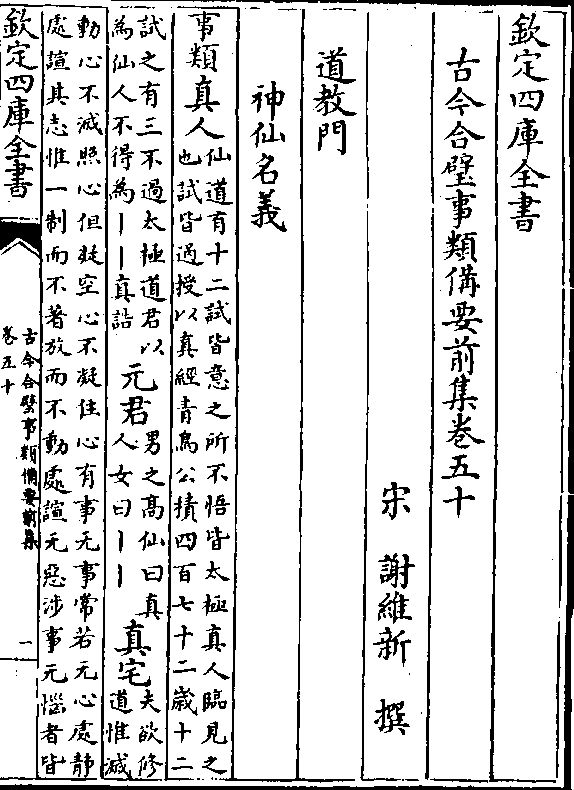 欽定四庫全書
古今合璧事類備要前集卷五十
宋 謝維新 撰
道教門
神仙名義
事類真人仙道有十二試皆意之所不悟皆太極真人臨見之
也試皆過授以真經青烏公積四百七十二歲十二
試之有三不過太極道君以
為仙人不得為丨丨真誥元君男之高仙曰真
人女曰丨丨真宅夫欲修
道惟滅
動心不滅照心但凝空心不凝住心有事无事常若无心處靜
處諠其志惟一制而不著放而不動處諠无惡涉事无惱者皆
欽定四庫全書
古今合璧事類備要前集
卷五十
一